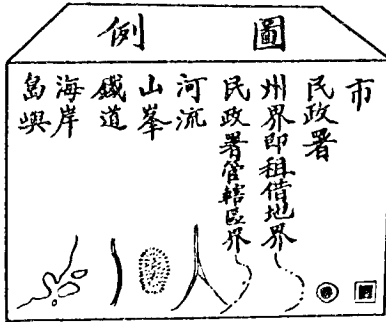 圖例
市
民政署
州界即租借地界
民政署管轄區界
河流
山峯
鐵道
海岸
島嶼